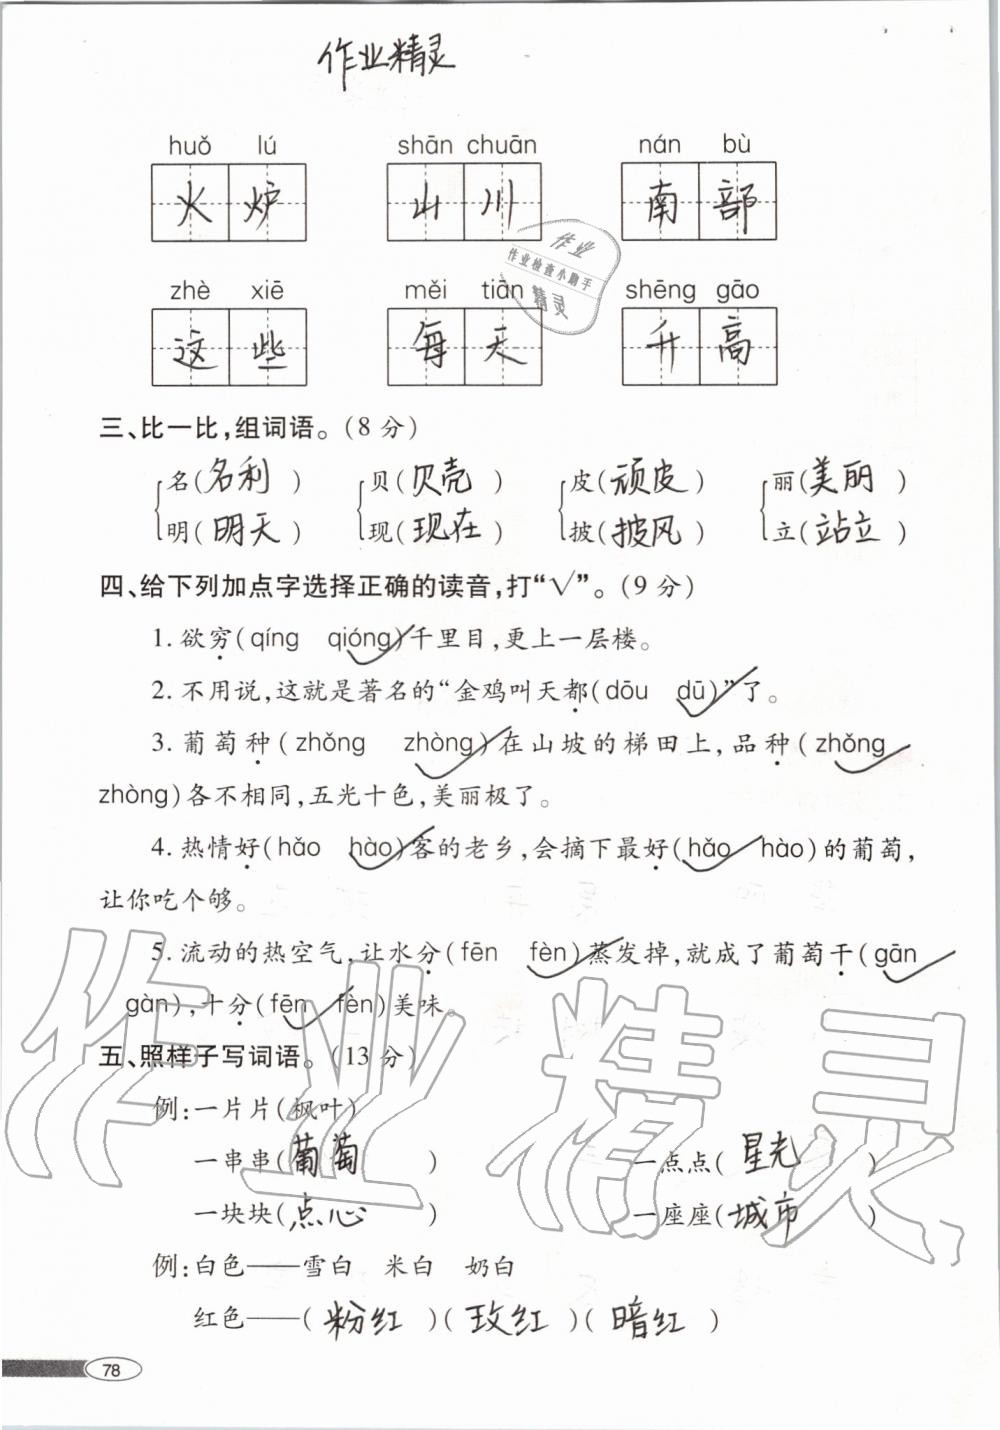 作业精灵
huǒ lú shān chuān nán bù
火炉 山川 南部
作业
作业检查小助手
精灵
zhè xiē měi tiān shēng gāo
这些 每天 升高
三、比一比,组词语。(8分)
名(名利) 贝(贝壳) 皮(顽皮) 丽(美丽)
明(明天) 现(现在) 披(披风) 立(站立)
四、给下列加点字选择正确的读音,打“√”。(9分)
1. 欲穷(qíng qióng√)千里目,更上一层楼。
2. 不用说,这就是著名的“金鸡叫天都(dōu dū√)”了。
3. 葡萄种(zhǒng zhòng√)在山坡的梯田上,品种(zhǒng√
zhòng)各不相同,五光十色,美丽极了。
4. 热情好(hǎo hào√)客的老乡,会摘下最好(hǎo√ hào)的葡萄,
让你吃个够。
5. 流动的热空气,让水分(fēn fèn√)蒸发掉,就成了葡萄干(gān√
gàn),十分(fēn√ fèn)美味。
五、照样子写词语。(13分)
例:一片片(枫叶)
一串串(葡萄) 一点点(星光)
一块块(点心) 一座座(城市)
例:白色——雪白 米白 奶白
红色——(粉红)(玫红)(暗红)
78
作业精灵